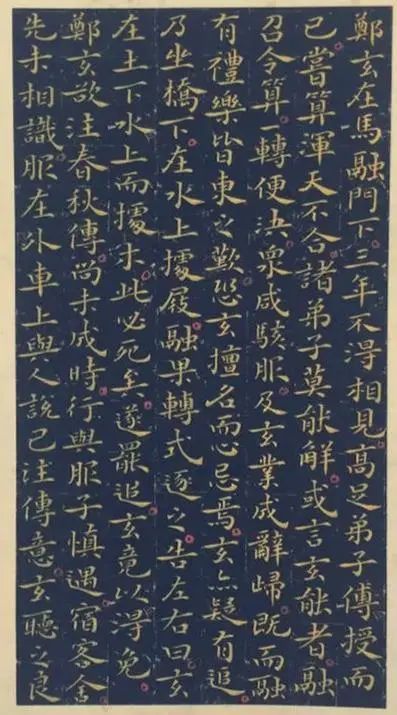 鄭玄在馬融門下三年不得相見高足弟子傳授而
已嘗算渾天不合諸弟子莫能解或言玄能者融
召令算一轉便決衆咸駭服及玄業成辭歸既而融
有禮樂皆東之歎恐玄擅名而心忌焉玄亦疑有追
乃坐橋下在水上據屐融果轉式逐之告左右曰玄
在土下水上而據木此必死矣遂罷追玄竟以得免
鄭玄欲注春秋傳尚未成時行與服子慎遇宿客舍
先未相識服在外車上與人說己注傳意玄聽之良